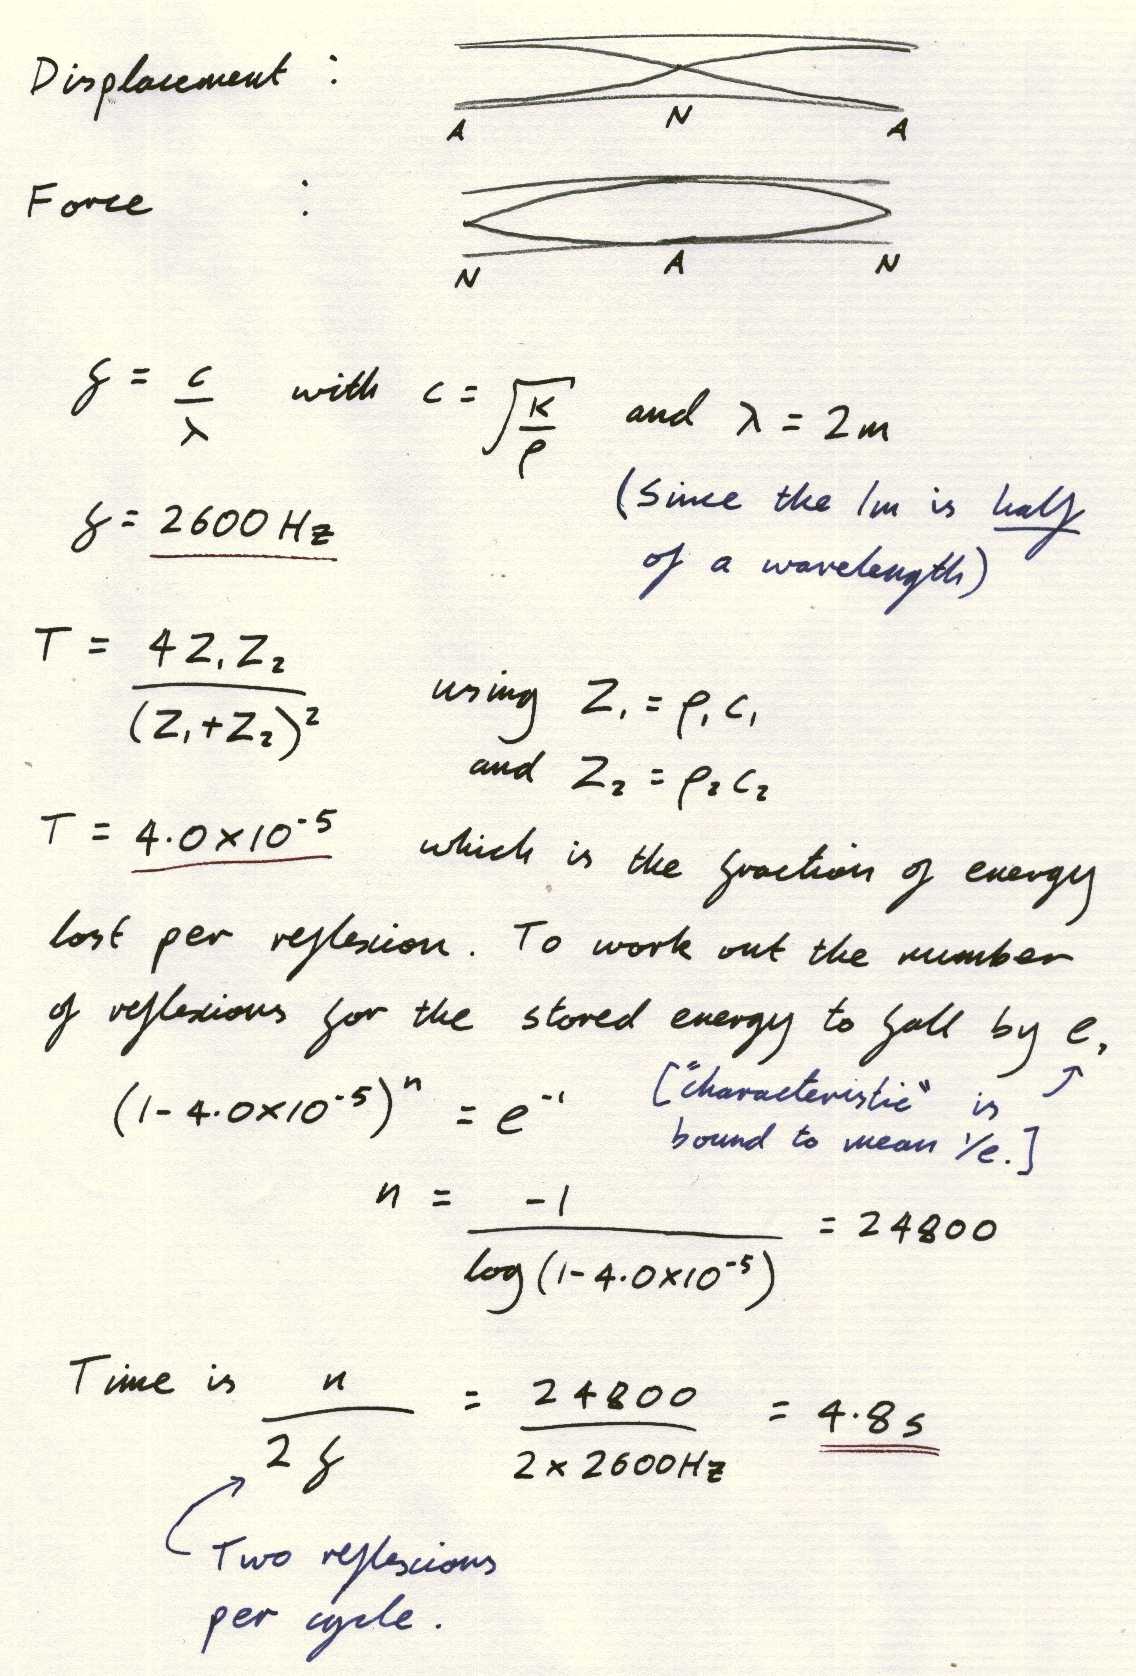 Displacement :
A N A
Force :
N A N
f = c/λ with c = √(K/ρ) and λ = 2m
(Since the 1m is half
of a wavelength)
f = 2600 Hz
T = 4Z₁Z₂/(Z₁+Z₂)² using Z₁ = ρ₁c₁
and Z₂ = ρ₂c₂
T = 4.0×10⁻⁵ which is the fraction of energy
lost per reflexion. To work out the number
of reflexions for the stored energy to fall by e,
(1-4.0×10⁻⁵)ⁿ = e⁻¹
["characteristic" is
bound to mean 1/e.]
n = -1/log(1-4.0×10⁻⁵) = 24800
Time is n/2f = 24800/2×2600Hz = 4.8s
Two reflexions
per cycle.